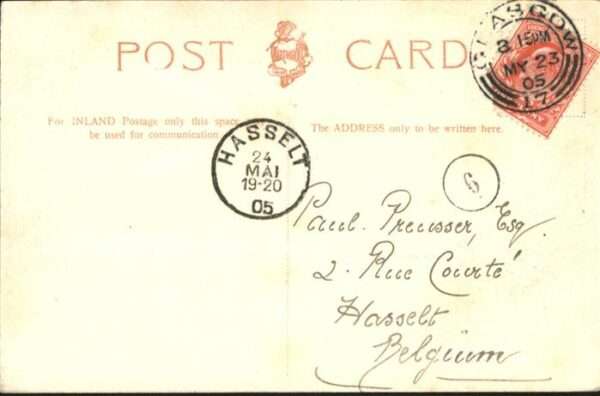 POST CARD
GLASGOW
3.15PM
MY 23
05
17
For INLAND Postage only this space
be used for communication
The ADDRESS only to be written here.
HASSELT
24
MAI
19-20
05
6
Paul. Preusser, Esq
2. Rue Courté
Hasselt
Belgium